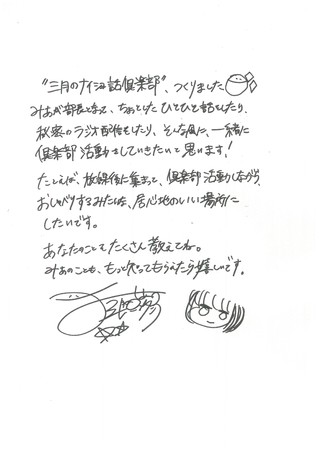 "三月のナイショ話倶楽部"、つくりました
みあが部長となって、ちょっとした ひとりごと話をしたり、
秘密のラジオ配信をしたり、そんな風に、一緒に
倶楽部 活動をしていきたいと思います!
たとえば、放課後に集まって、倶楽部 活動しながら、
おしゃべりするみたいな、居心地のいい場所に
したいです。
あなたのこともたくさん教えてね。
みあのことも、もっと知ってもらえたら嬉しいです。